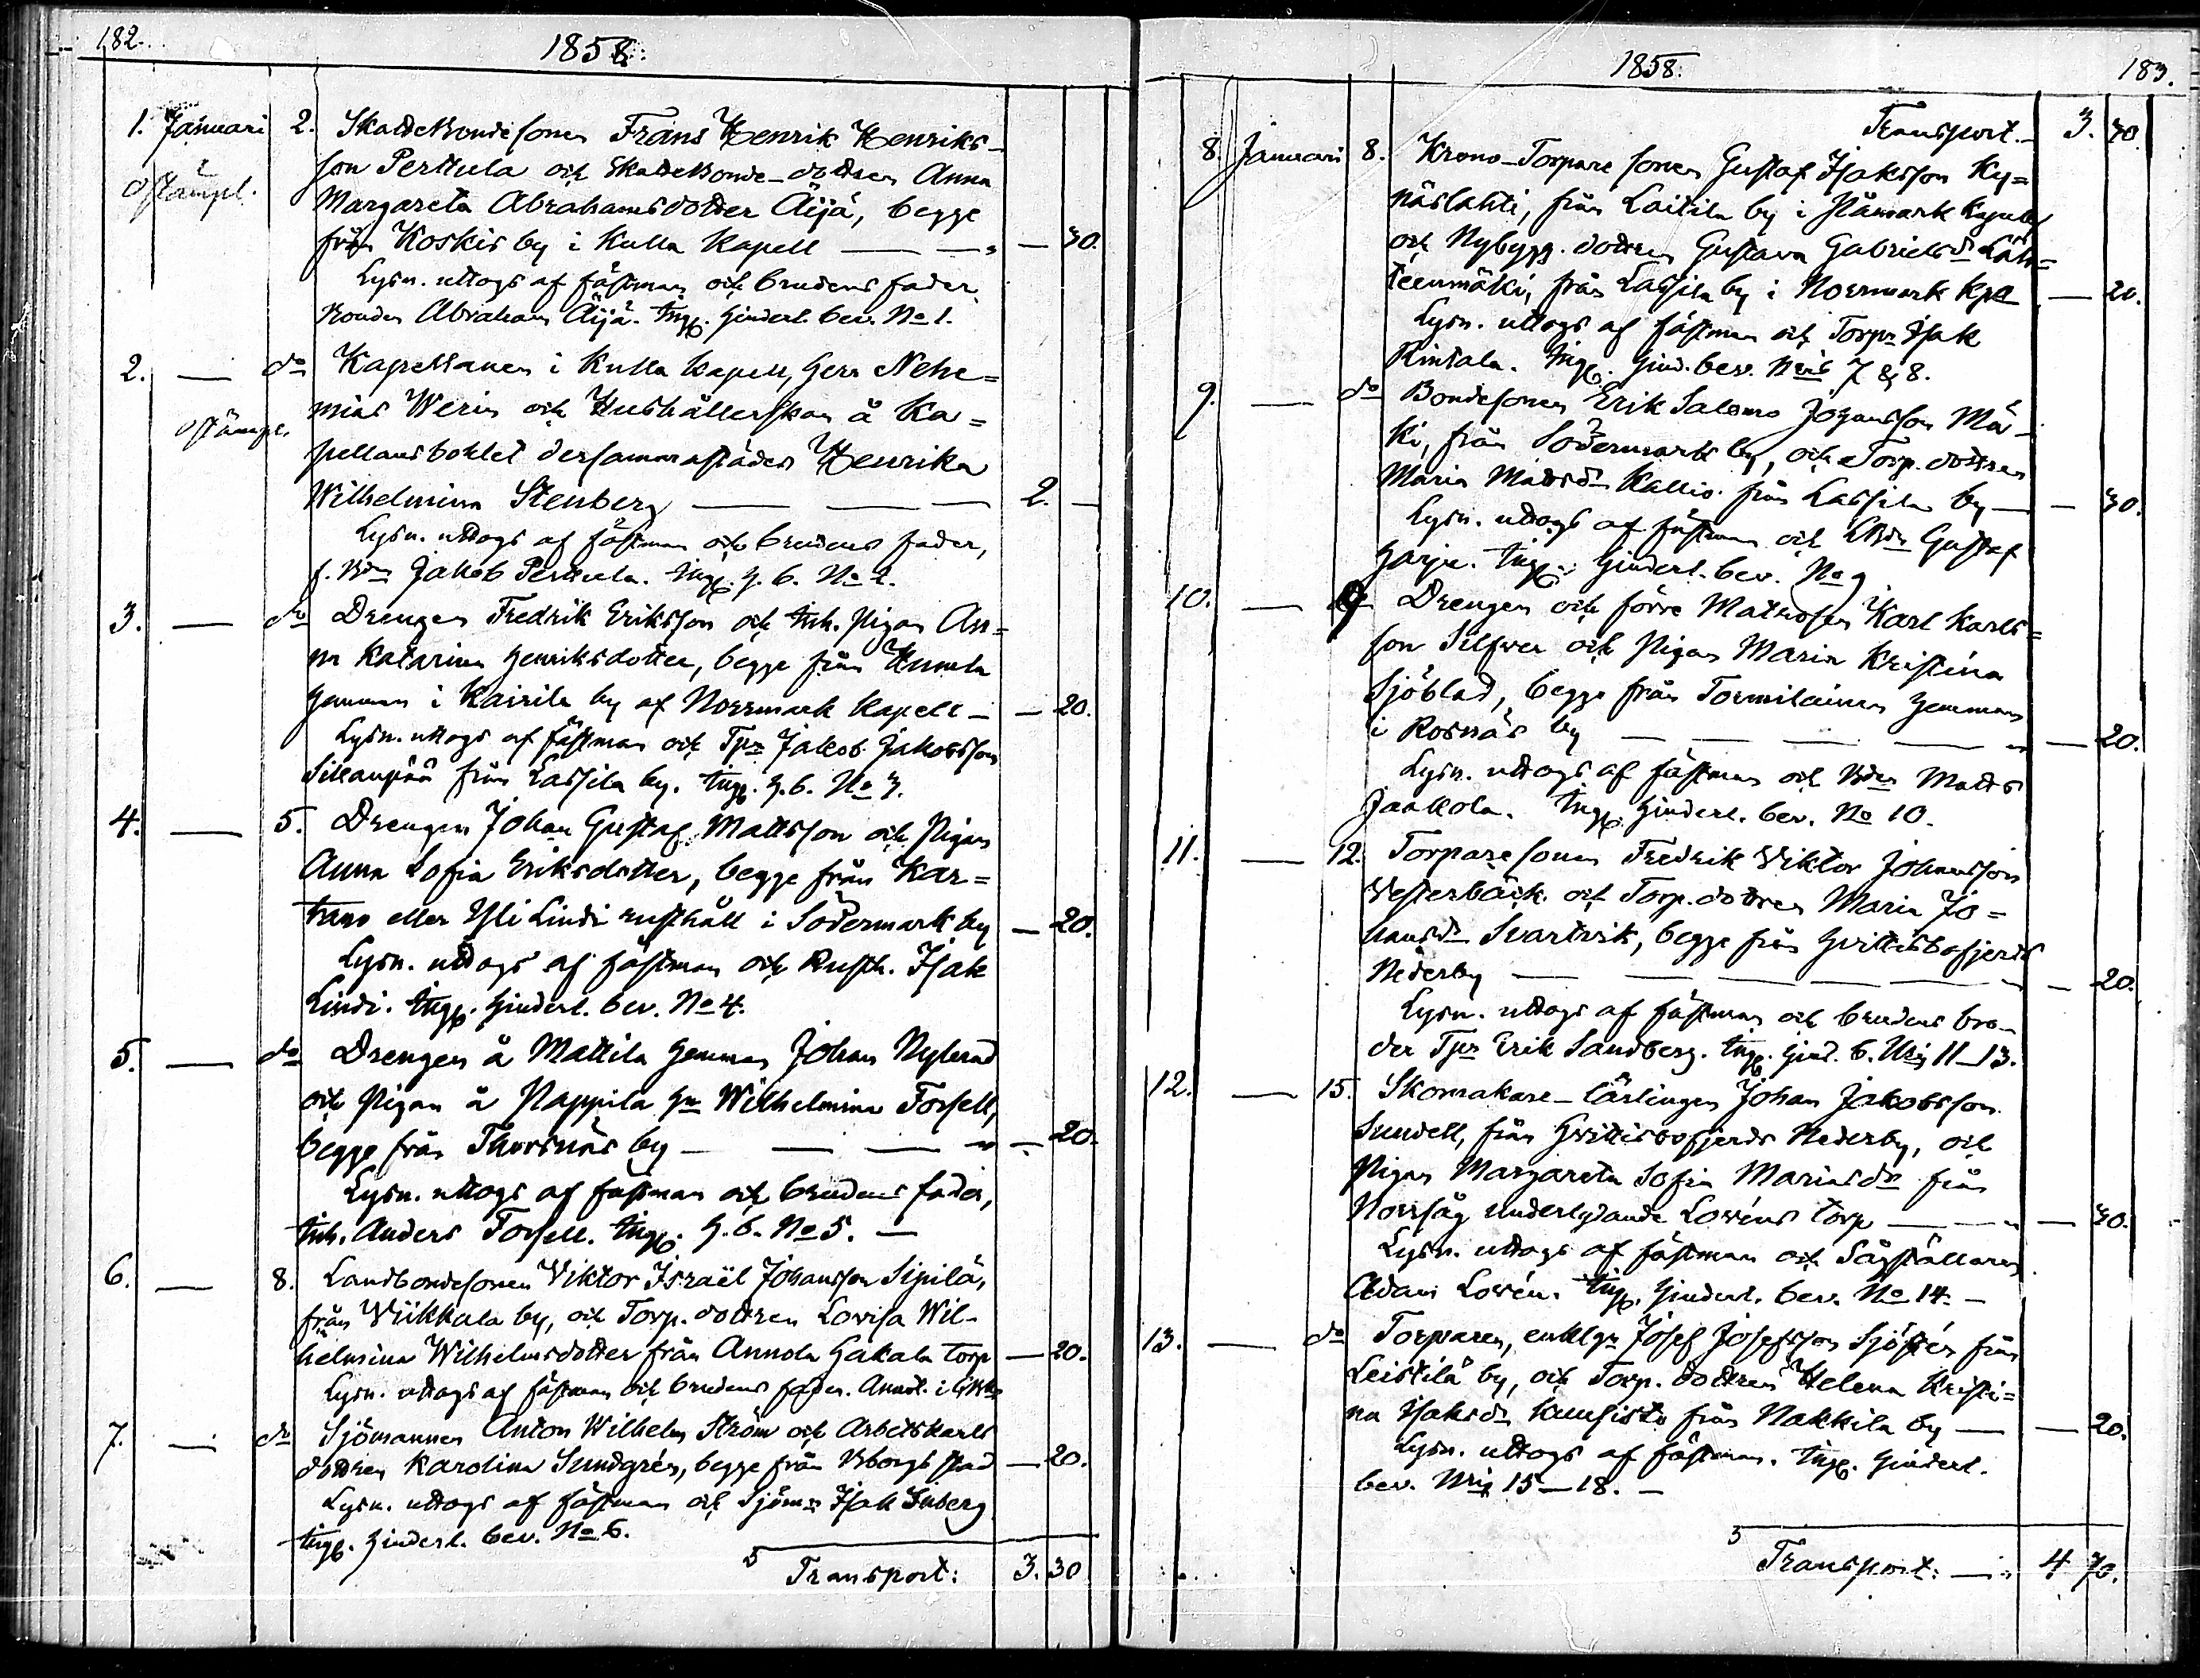 182.
1858.
1. Januari 2. Skattebondesonen Frans Henrik Henriks-
son Perttula och Skattebonde-dottren Anna
ostämpl.
Margareta Abrahamsdotter Äijä, begge
från Koskis by i Kulla Kapell — 30.
Lysn. uttogs af fästman och brudens fader,
bonden Abraham Äijä. Ingp. hinderl. bev. No 1.
2. — do Kapellanen i Kulla kapell, Herr Nehe=
mias Werin och Hushållerskan å Ka=
ostämpl.
pellansbohlet dersammastädes Henrika
Wilhelmina Stenberg — 2. —
Lysn. uttogs af fästman och brudens fader,
f. Bdn Jakob Perttula. Ingp. h. b. No 2.
3. — do Drengen Fredrik Eriksson och Inh. Pigan An=
na Katarina Henriksdotter, begge från
hemman i Kairila by af Norrmark Kapell — 20.
Lysn. uttogs af fästman och Tpr Jakob Jakobsson
Sillanpää från Lassila by. Ingp. h. b. No 3.
4. — 5. Drengen Johan Gustaf Mattsson och Pigan
Anna Sofia Eriksdotter, begge från Kar=
tano eller Yli Lindi rusthåll i Södermark by — 20.
Lysn. uttogs af fästman och Rusth. Isak
Lindi. Ingp. hinderl. bev. No 4.
5. — do Drengen å Mattila hemman Johan Nylund
och Pigan å Pappila hn Wilhelmina Forsell,
begge från Thorsnäs by — 20.
Lysn. uttogs af fästman och brudens fader,
Inh. Anders Forsell. Ingp. h. b. No 5. —
6. — 8. Landbondesonen Viktor Israël Johansson Sipilä,
från Wiikkala by, och Torp. dottren Lovisa Wil-
helmina Wilhelmsdotter från Annola Hakala torp — 20.
Lysn. uttogs af fästman och brudens fader.
7. — do Sjömannen Anton Wilhelm Ström och Arbetskarls
dottren Karolina Sundgrén, begge från Bborgs stad — 20.
Lysn. uttogs af fästman och Sjöm:n Isak Inberg
Ingp. hinderl. bev. No 6.
Transport: 3. 30
1858.
183.
Transport. — 3. 30.
8. Januari 8. Krono-Torpare sonen Gustaf Isaksson Ky=
näslahti, från Laitila by i Påmark
och Nybygg. dottren Gustava Gabrielsdr Läh=
teenmäki, från Lassila by i Norrmark Kpll — 20.
Lysn. uttogs af fästman och Torpr Isak
Rintala. Ingp. hind. bev. Nris 7 & 8.
9. — do Bondesonen Erik Salomo Johansson Mä-
ki, från Södermark by, och Torp. dottren
Maria Mattsdr Kallio från Lassila by — 30.
Lysn. uttogs af fästman och Gustaf
Harju. Ingp. hinderl. bev. No 9
10. — 9 Drengen och förre Matrosen Karl Karls=
son Silfver och Pigan Maria Kristina
Sjöblad, begge från Tormilainen hemman
i Rosnäs by — 20.
Lysn. uttogs af fästman och Bdn Matts
Jaakola. Ingp. hinderl. bev. No 10.
11. — 12. Torparesonen Fredrik Viktor Johansson
Westerbäck och Torp. dottren Maria Jo=
hansdr Svartvik, begge från Hvittisbofjerds
Nederby — 20.
Lysn. uttogs af fästman och brudens bro-
der Tpr Erik Sandberg. Ingp. hind. b. Nris 11–13.
12. — 15. Skomakare-lärlingen Johan Jakobsson
Sundell, från Hvittisbofjerds Nederby, och
Pigan Margareta Sofia Mariasdr från
Norrsåg underlydande Lovéns torp — 30.
Lysn. uttogs af fästman och Sågställaren
Adam Lovén. Ingp. hinderl. bev. No 14. —
13. — do Torparen, enklgn Josef Josefsson Sjöstén från
Leistilä by, och Torp. dottren Helena Kristi=
na Isaksdr Kuusisto från Nakkila by — 20.
Lysn. uttogs af fästman. Ingp. hinderl.
bev. Nris 15–18. —
Transport: — 4 70.